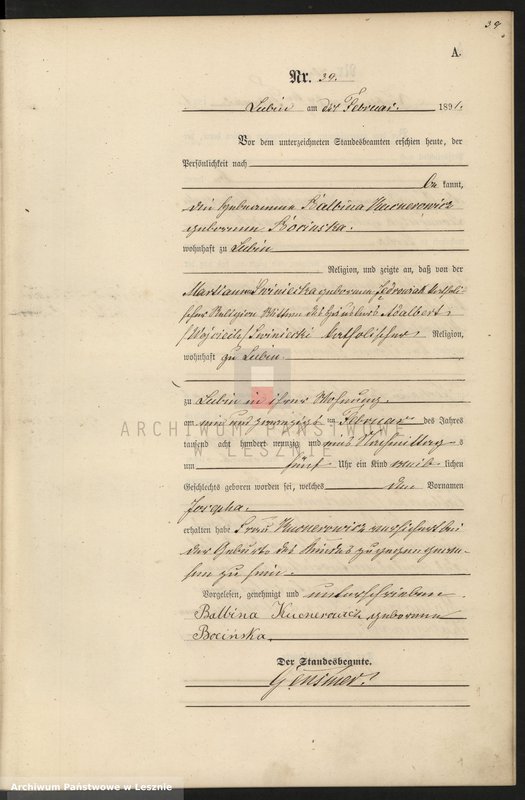 39
A.
Nr. 39.
Lubin am Februar 1891.
Vor dem unterzeichneten Standesbeamten erschien heute, der
Persönlichkeit nach
be kannt,
die Hebeamme Balbina Kucnerowicz
geborene Bocinska.
wohnhaft zu Lubin
Religion, und zeigte an, daß von der
Marianna Swiniecka geborene katholi-
scher Religion Wittwe des Häuslers Adalbert
/Wojciech/ Swiniecki katholischer Religion,
wohnhaft zu Lubin
zu Lubin in ihrer Wohnung
am ein und zwanzigsten Februar des Jahres
tausend acht hundert neunzig und eins Nachmittag s
um fünf Uhr ein Kind weib lichen
Geschlechts geboren worden sei, welches den Vornamen
Josepha.
erhalten habe Frau Kucnerowicz versichert bei
der Geburt des Kindes zugegen gewe-
sen zu sein.
Vorgelesen, genehmigt und unterschrieben
Balbina Kucnerowicz geborene
Bocińska.
Der Standesbeamte.
ARCHIWUM PAŃSTWOWE
W LESZNIE
Archiwum Państwowe w Lesznie